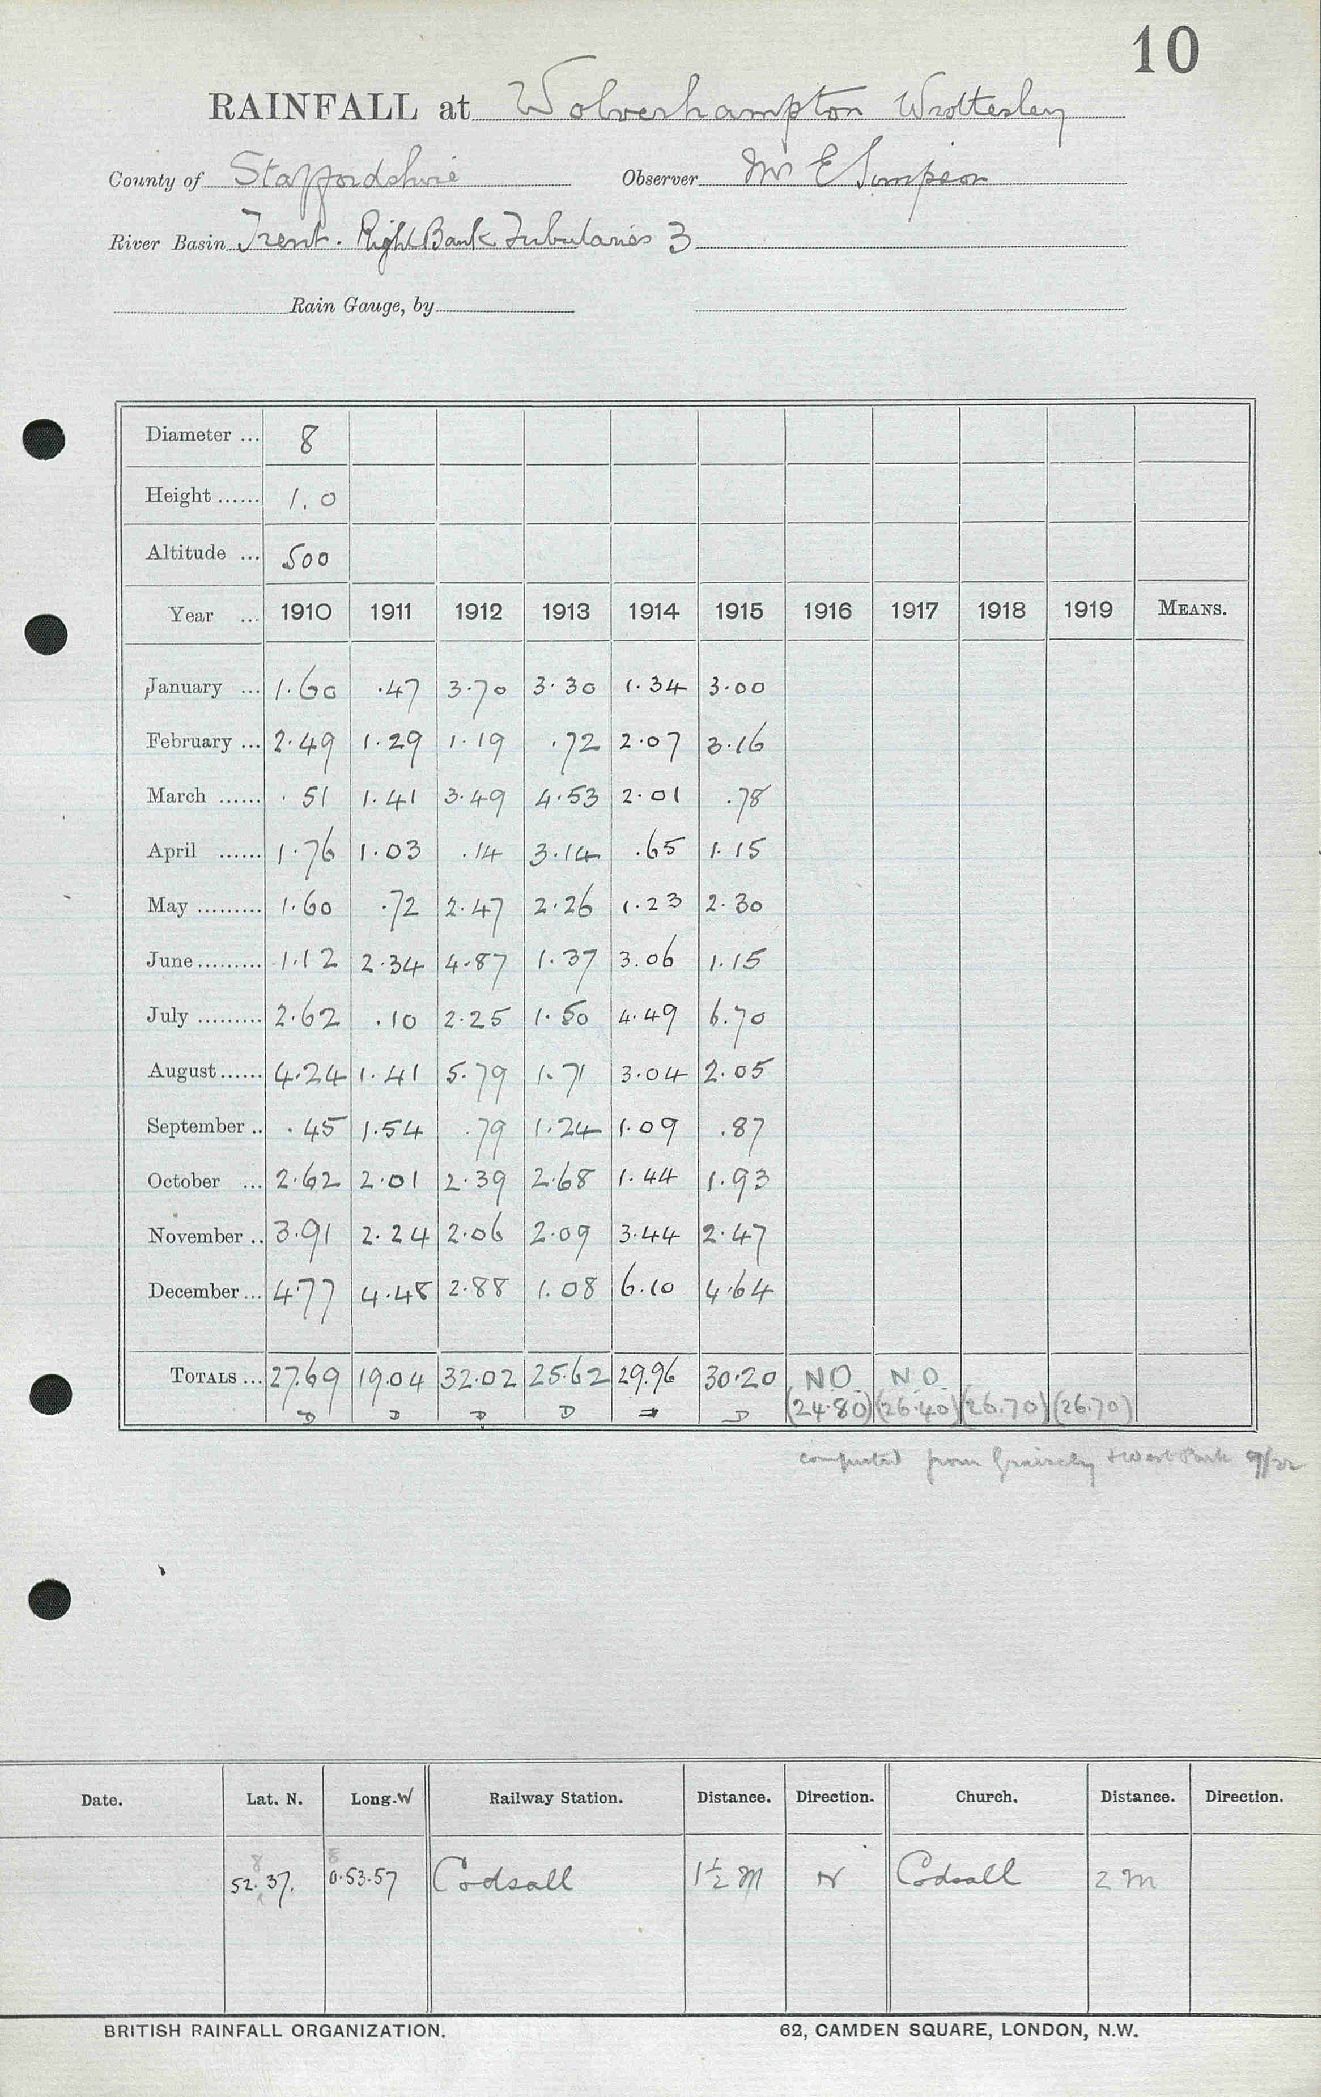 10
RAINFALL at Wolverhampton Wrottesley
County of Staffordshire Observer Mr E Simpson
River Basin Trent. Right Bank Tributaries 3
Rain Gauge, by
Diameter ... 8
Height ...... 1.0
Altitude ... 500
Year ... 1910 1911 1912 1913 1914 1915 1916 1917 1918 1919 MEANS.
January ... 1.60 .47 3.70 3.30 1.34 3.00
February ... 2.49 1.29 1.19 .72 2.07 3.16
March ...... .51 1.41 3.49 4.53 2.01 .78
April ...... 1.76 1.03 .14 3.14 .65 1.15
May ......... 1.60 .72 2.47 2.26 1.23 2.30
June ......... 1.12 2.34 4.87 1.37 3.06 1.15
July ......... 2.62 .10 2.25 1.50 4.49 6.70
August ...... 4.24 1.41 5.79 1.71 3.04 2.05
September .. .45 1.54 .79 1.24 1.09 .87
October ... 2.62 2.01 2.39 2.68 1.44 1.93
November .. 3.91 2.24 2.06 2.09 3.44 2.47
December ... 4.77 4.48 2.88 1.08 6.10 4.64
TOTALS ... 27.69 19.04 32.02 25.62 29.96 30.20 NO NO
D D D D D (24.80) (26.40) (26.70) (26.70)
computed from Graiseley & West Park 9/22
Date. Lat. N. Long. W Railway Station. Distance. Direction. Church. Distance. Direction.
8 8
52. 37. 0.53.57 Codsall 1½ m N Codsall 2 m
BRITISH RAINFALL ORGANIZATION. 62, CAMDEN SQUARE, LONDON, N.W.